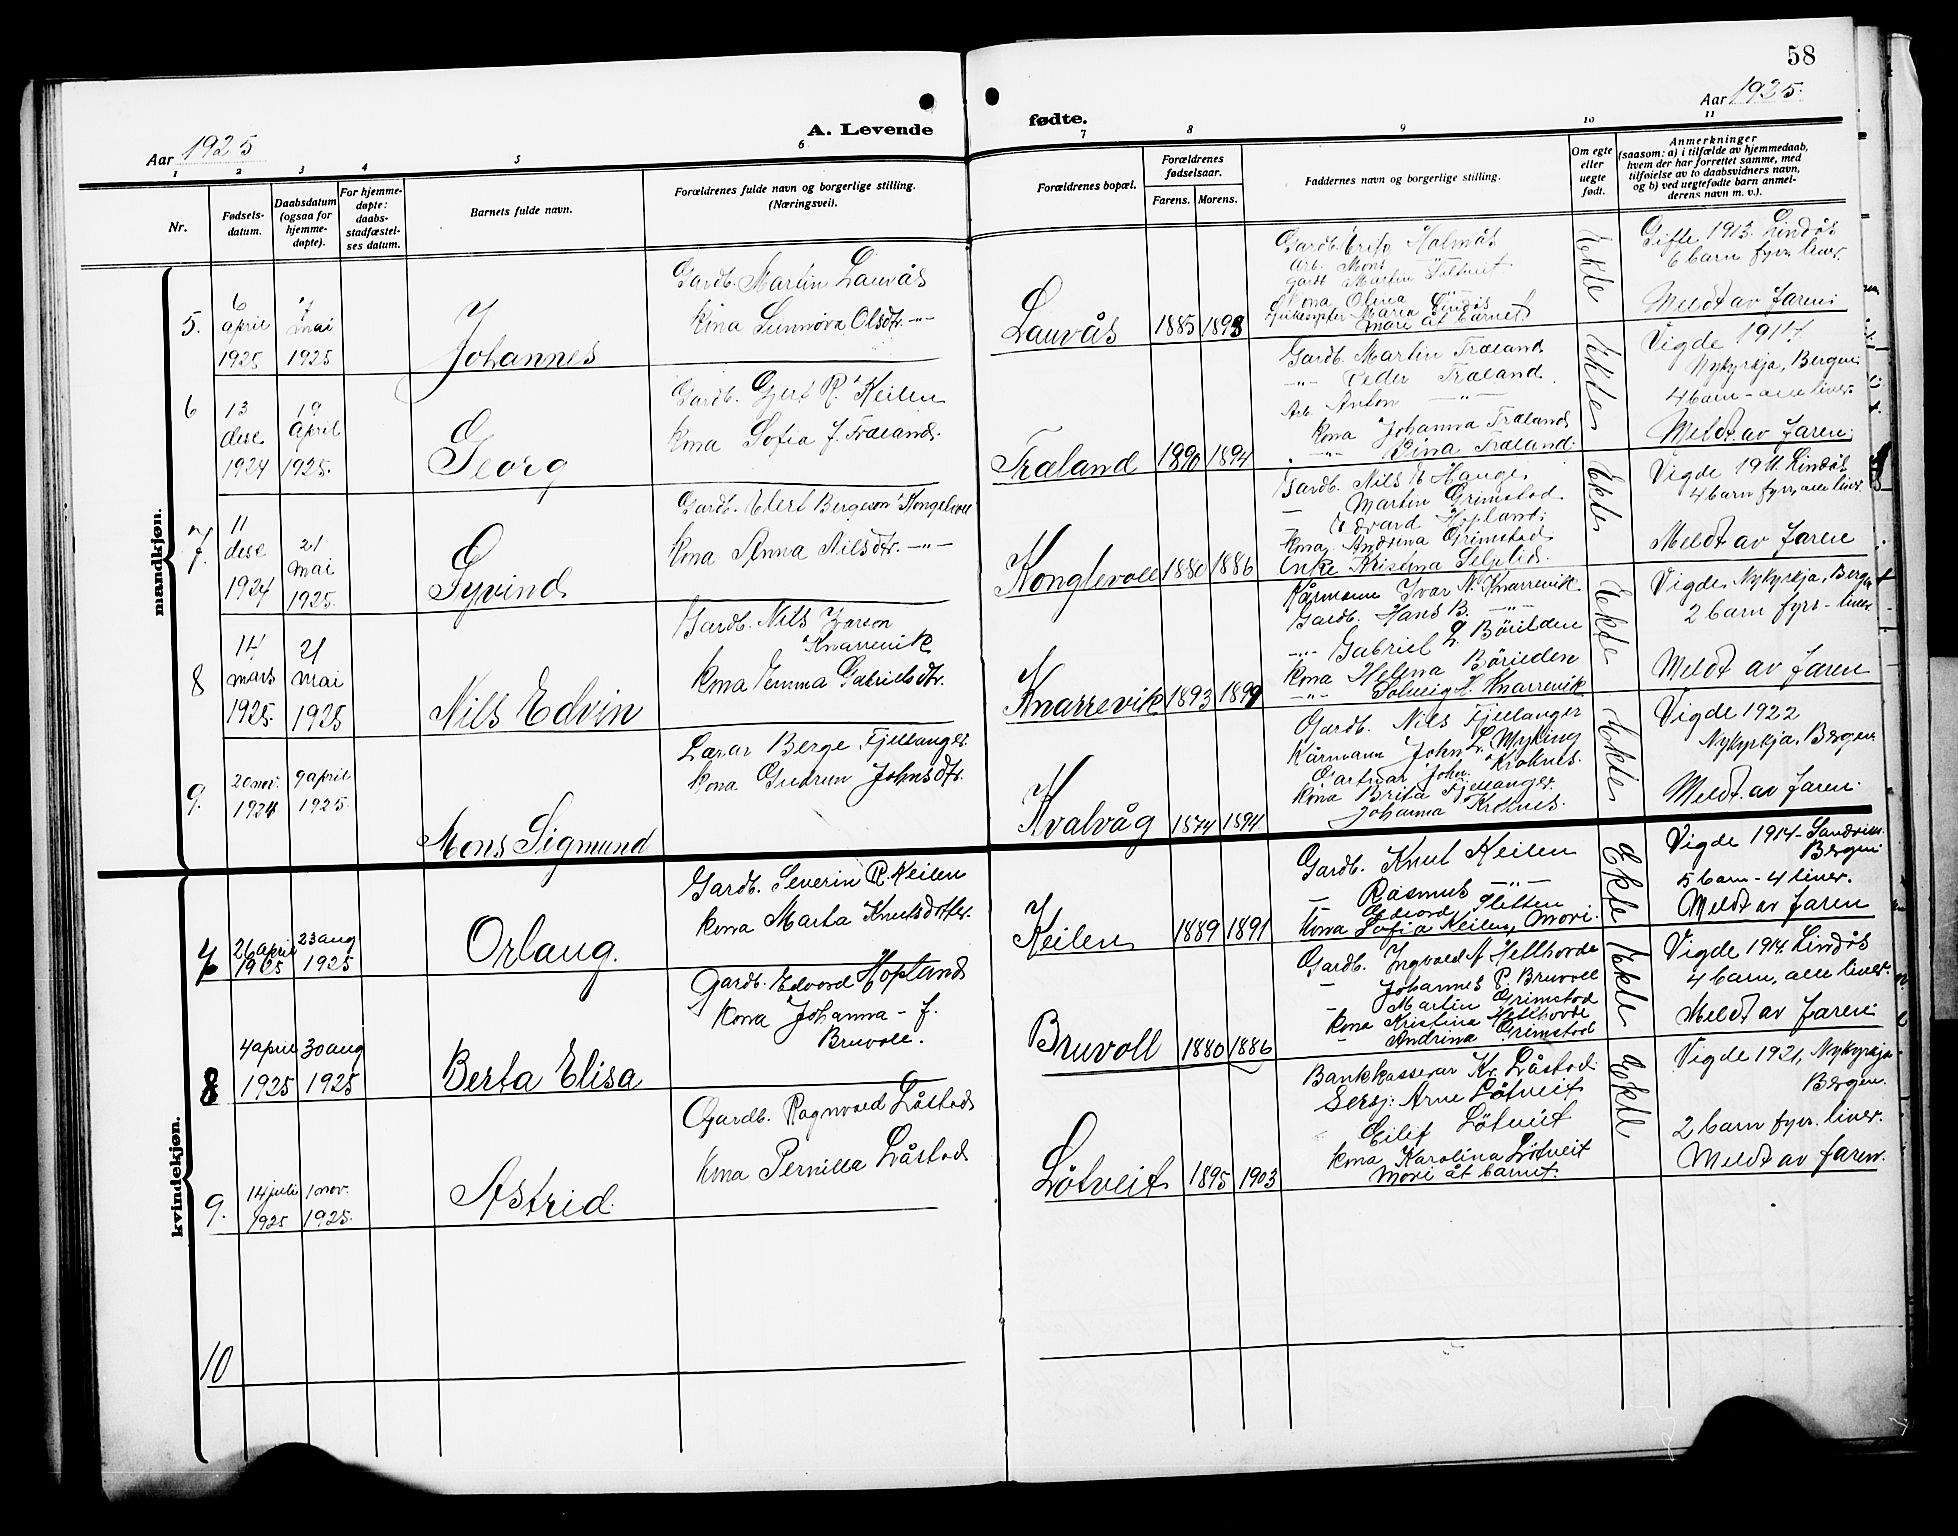 58
Aar 1925
A. Levende
fødte.
Aar 1925.
1 2 3 4 5 6 7 8 9 10 11
Nr.
Fødsels-
datum.
Daabsdatum
(ogsaa for
hjemme-
døpte).
For hjemme-
døpte:
daabs-
stadfæstel-
ses datum.
Barnets fulde navn.
Forældrenes fulde navn og borgerlige stilling.
(Næringsvei).
Forældrenes bopæl.
Forældrenes
fødselsaar.
Farens. Morens.
Faddernes navn og borgerlige stilling.
Om egte
eller
uegte
født.
Anmerkninger
(saasom: a) i tilfælde av hjemmedaab,
hvem der har forrettet samme, med
tilføielse av to daabsvidners navn,
og b) ved uegtefødte barn anmel-
derens navn m. v.).
mandkjøn.
5.
6
april
1925
7
mai
1925
Johannes
Gardb. Martin Lauvås
Kona Sunnøva Olsdtr. -"-
Lauvås
1885
1893
Gardb. Holmås
Arb. Mons -"-
Gardb. Martin Tiltveit
Kona Olina -"-
Maria Lindås
Mori åt barnet
Ekte
Gifte 1913. Lindås
6 barn fyrr liver.
Meldt av faren:
6
13
dese
1924
19
april
1925.
Georg
Gardb. Gert R. Keilen
Kona Sofia J. Træland.
Træland
1890
1894
Gardb. Martin Træland
-"- Peder Træland.
Arb. Anton -"-
Kona Johanna Træland
-"- Dina Træland.
Ekte
Vigde 1917
Nykyrkja, Bergen.
4 barn - alle liver.
Meldt av faren.
7.
11
dese
1924
21
mai
1925.
Øyvind
Gardb. Elert Bergeson Konglevoll
Kona Anna Nilsdtr. -"-
Konglevoll
1880
1886
Gardb. Nils E Hauge.
- Martin Grimstad
- Edvard Hopland:
Kona Andrina Grimstad
Enke Kristina Selelid.
Ekte
Vigde 1911. Lindås
4 barn fyrr, alle liver.
Meldt av faren
8
14
mars
1925.
21
mai
1925
Nils Edvin
Gardb. Nils Ivarson
Knarrevik
Kona Emma Gabrielsdtr.
Knarrevik
1893
1899
Kårmann Ivar N. Knarrevik
Gardb. Hans B. -"-
-"- Gabriel L. Börilden
Kona Helena Börilden
-"- Solveig H. Knarrevik
Ekte
Vigde, Nykyrkja, Bergen
2 barn fyrr - liver.
Meldt av faren
9.
20 nov.
1924
9 april
1925.
Mons Sigmund
Lærar Berge Fjellanger.
Kona Gudrun Johnsdtr.
Kvalvåg
1874
1894
Gardb. Nils Fjellanger
Kårmann John L. Myking
Gartnar John Kroknes.
Kona Brita Fjellanger.
Johanna Kroknes.
Ekte
Vigde 1922
Nykyrkja, Bergen
Meldt av faren.
kvindekjøn.
7
26 april
1925
23 aug
1925
Orlaug.
Gardb. Severin R. Keilen
Kona Marta Knutsdotter.
Keilen
1889
1891
Gardb. Knut Keilen
- Rasmus -"-
- Edvard Fletten
Kona Sofia Keilen, Mori.
Ekte
Vigde 1914 - Sandviken
Bergen
5 barn - 4 liver.
Meldt av faren
8
4 april
1925
30 aug
1925
Berta Elisa
Gardb. Edvard Hopland
Kona Johanna - f.
Bruvoll.
Bruvoll
1880
1886
Gardb. Ingvald A Hellhovde
- Johannes P. Bruvoll
- Martin Grimstad
Kona Kristina Hellhovde
- Andrina Grimstad
Ekte
Vigde 1914. Lindås
4 barn, alle liver.
Meldt av faren:
9.
14 juli
1925
1 nov.
1925.
Astrid.
Gardb. Ragnvald Låstad
Kona Pernilla Låstad
Lötveit
1895
1903
Bankkasserar Kr. Låstad.
Sersj: Arne Lötveit
Eilif Lötveit
Kona Karolina Lötveit
Mori åt barnet.
Ekte
Vigde 1921, Nykyrkja
Bergen.
2 barn fyrr. liver.
Meldt av faren.
10